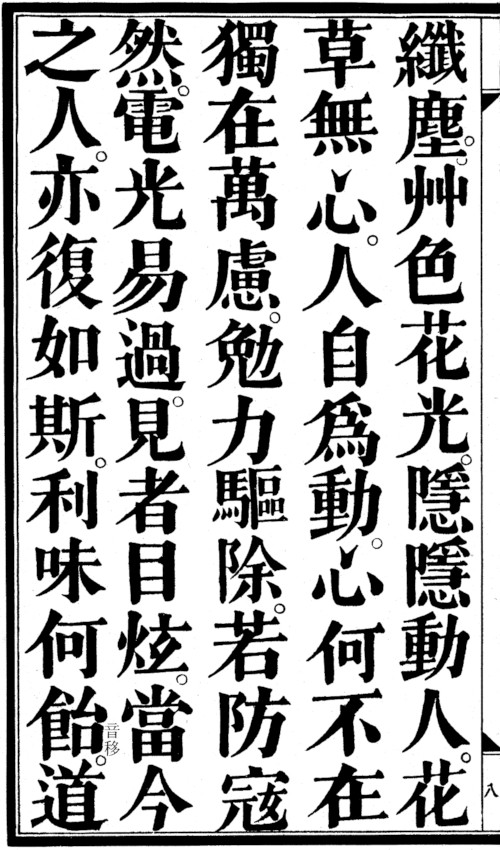 纖塵。艸色花光。隱隱動人。花
草無心。人自爲動。心何不在
獨在萬慮。勉力驅除。若防寇
然。電光易過。見者目炫。當今
之人。亦復如斯。利味何飴音移。道
八